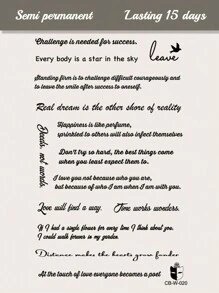 Semi permanent Lasting 15 days
Challenge is needed for success.
Every body is a star in the sky
leave
Standing firm is to challenge difficult courageously and
to leave the smile after success to oneself.
Real dream is the other shore of reality
Deeds, not words.
Happiness is like perfume,
sprinkled to others will also infect themselves
Don't try so hard, the best things come
when you least expect them to.
I love you not because who you are,
but because of who I am when I am with you.
Love will find a way.
Time works wonders.
If I had a single flower for every time I think about you,
I could walk forever in my garden.
Distance makes the hearts grow funder
At the touch of love everyone becomes a poet
CB-W-020